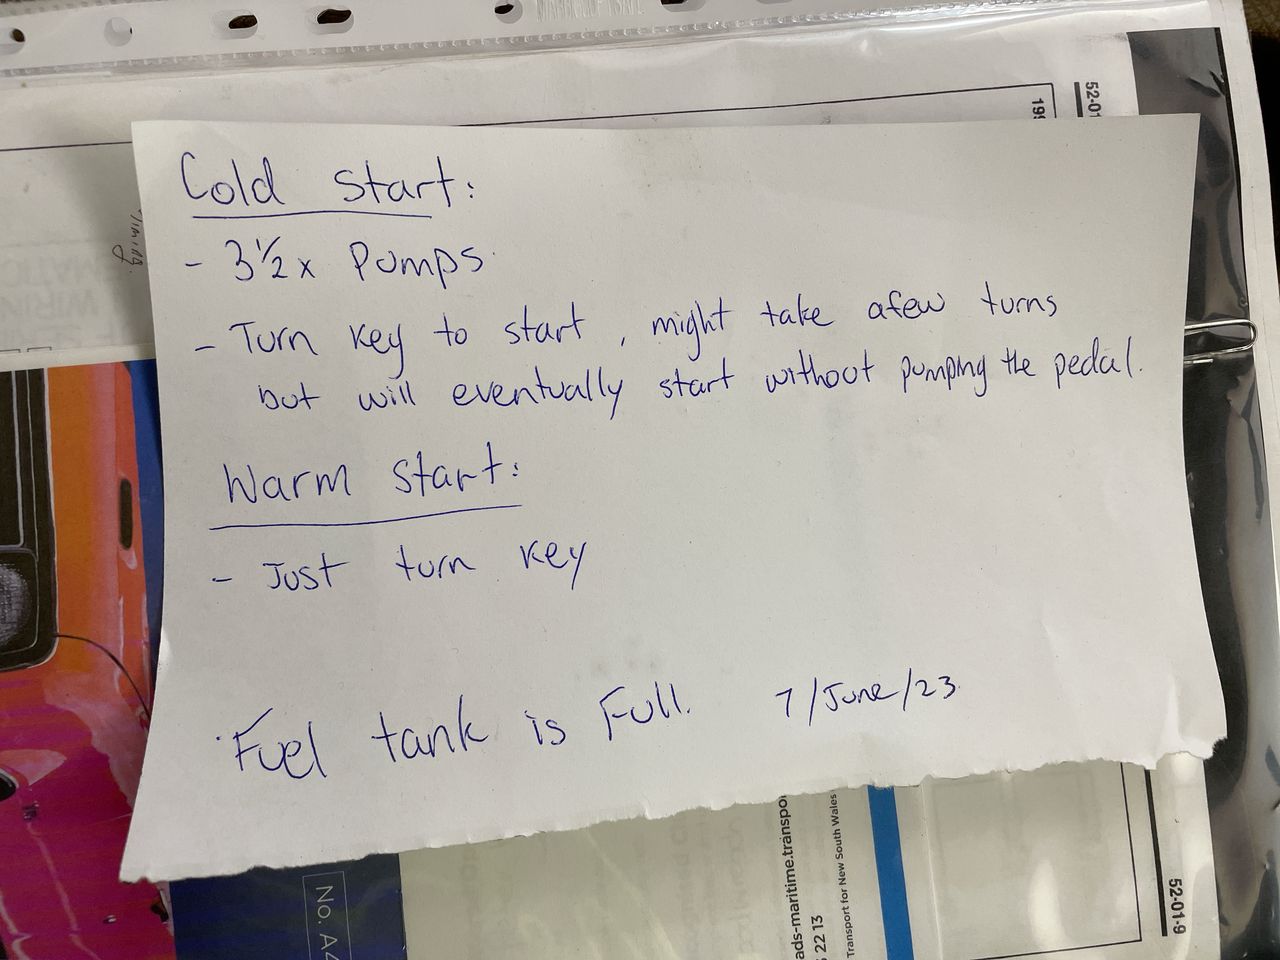 Cold start:
- 3½x Pumps.
- Turn key to start, might take afew turns
but will eventually start without pumping the pedal.
Warm start:
- Just turn key
Fuel tank is Full. 7/June/23
52-01
199
52-01-9
No. A4
ads-maritime.transpo
22 13
Transport for New South Wales